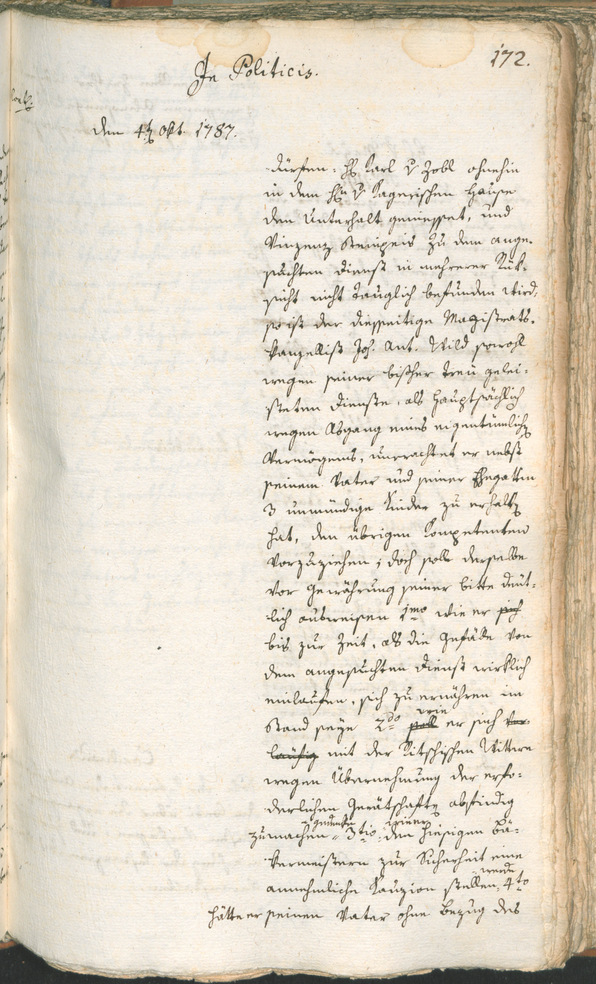 172.
In Politicis.
den 4t Okt. 1787.
dürfen: H Karl v Zobl ohnehin
in dem Hn v Sagerischen Hause
den Unterhalt geniesset, und
Vinzenz Stempeis zu dem ange-
suchten Dienst in mehrerer Rük-
sicht nicht tauglich befunden wird,
so ist der diesseitige Magistrats-
kanzellist Joh. Ant. Wild sowohl
wegen seiner bisher treu gelei-
steten Dienste, als hauptsächlich
wegen Abgang eines eigentümlich
Vermögens, unerachtet er nebst
seinem Vater und seiner Ehegattin
3 unmündige Kinder zu erhalt
hat, den übrigen Kompetenten
vorzuziehen; doch soll derselbe
vor Gewährung seiner Bitte deut-
lich ausweisen 1mo wie er sich
bis zur Zeit, als die Gefälle von
dem angesuchten Dienst wirklich
einlaufen, sich zu ernähren im
Stand seye 2do wie
soll er sich vor-
läufig mit der Kitschischen Wittwe
wegen Übernehmung der erfo-
derlichen Gerätschafte abfindig
zumachen gedenke 3tio den hiesigen Bä-
kermeistern zur Sicherheit eine
annehmliche Kauzion stellen, 4to
hätte er seinen Vater ohne Bezug des